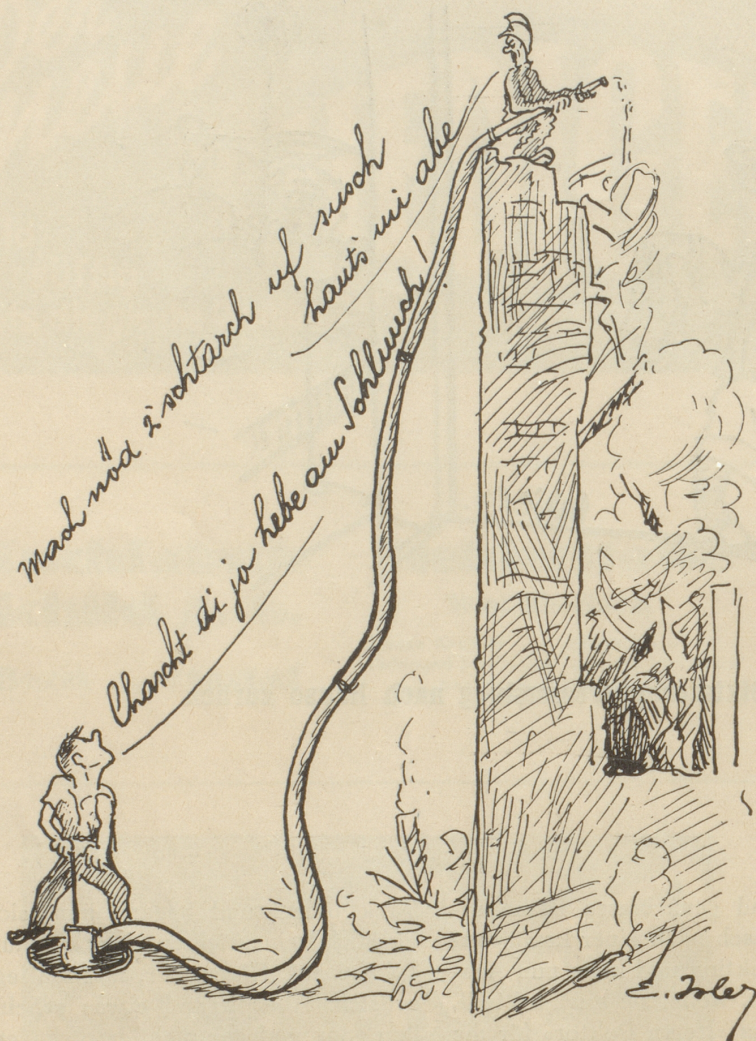 Mach nöd z'schtarch uf susch
hauts mi abe
Chascht di jo hebe am Schluuch!
E. Isler